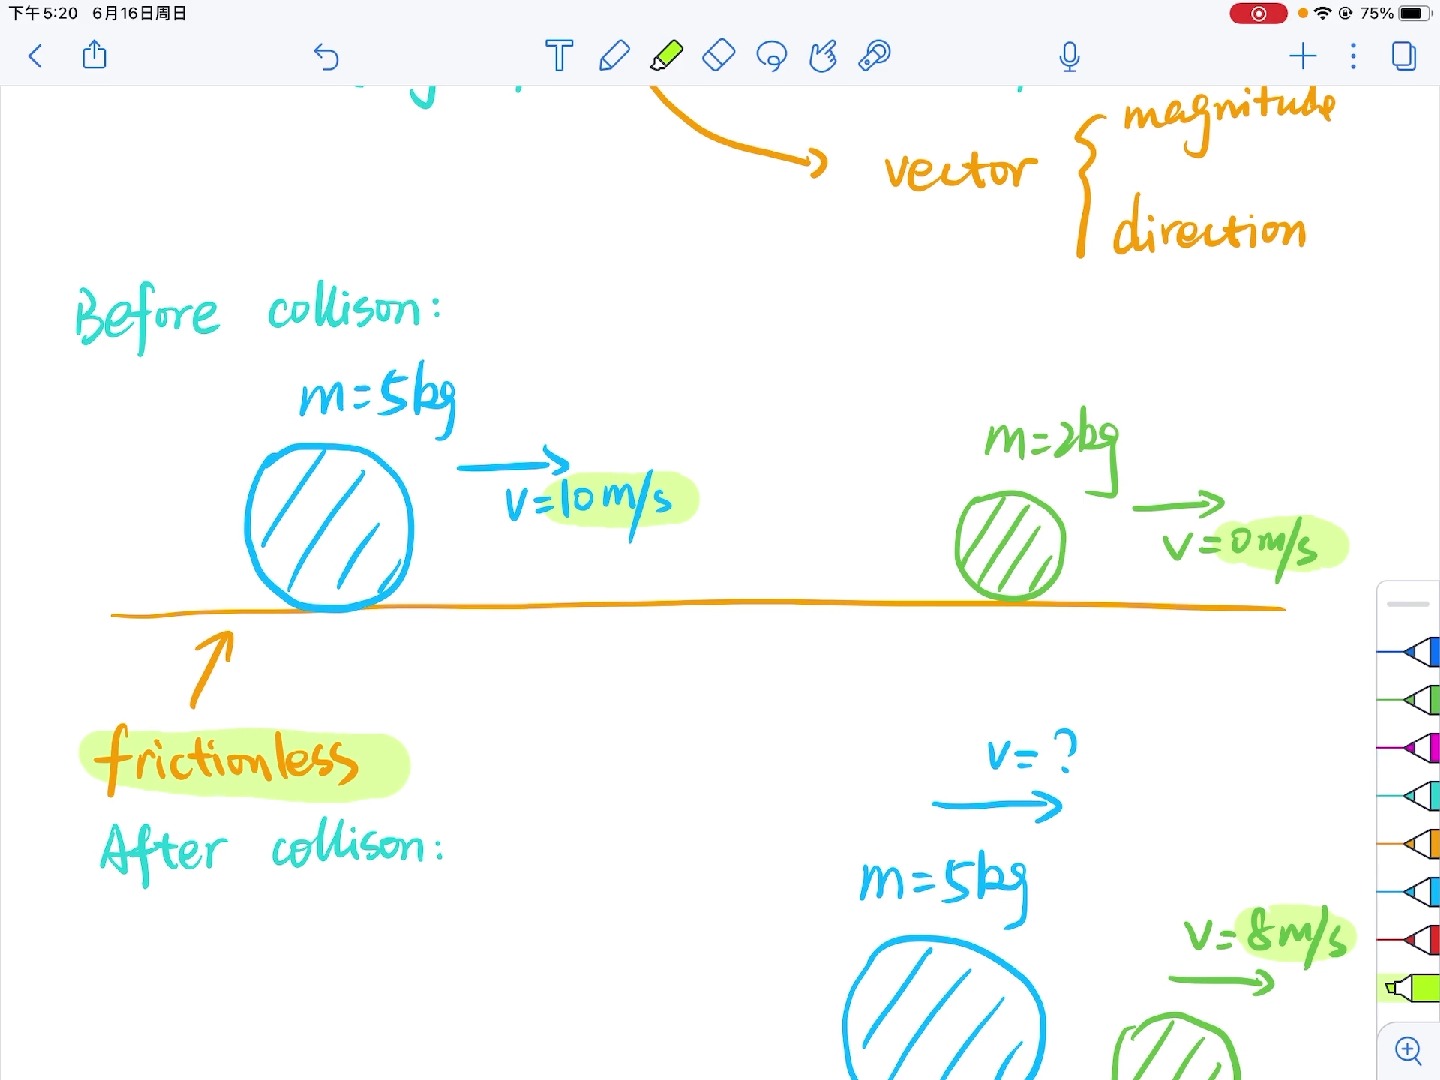 下午5:20 6月16日周日
75%
magnitude
vector
direction
Before collison:
m=5kg
m=2kg
v=10m/s
v=0m/s
frictionless
v=?
After collison:
m=5kg
v=8m/s